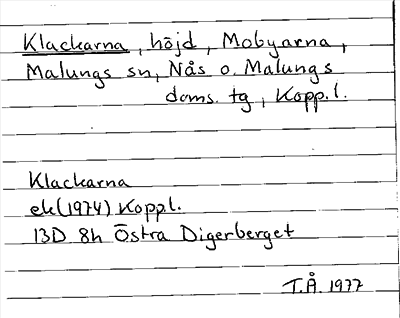 Klackarna, höjd, Mobyarna,
Malungs sn, Nås o. Malungs
doms. tg, Kopp. l.
Klackarna
ek (1974) Koppl.
13D 8h Östra Digerberget
T.Å. 1977